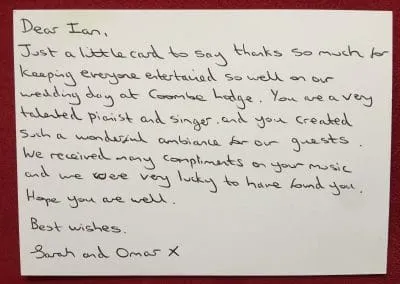 Dear Ian,
Just a little card to say thanks so much for
keeping everyone entertained so well on our
wedding day at Coombe Lodge. You are a very
talented pianist and singer, and you created
such a wonderful ambiance for our guests.
We received many compliments on your music
and we were very lucky to have found you.
Hope you are well.
Best wishes.
Sarah and Omar X